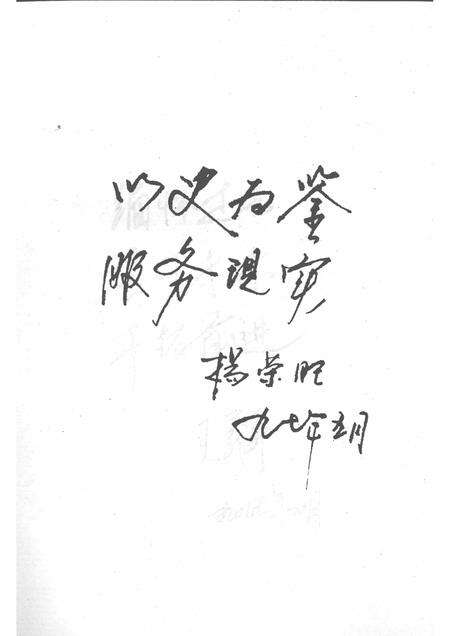 以史为鉴
服务现实
杨荣旺
九七年五月